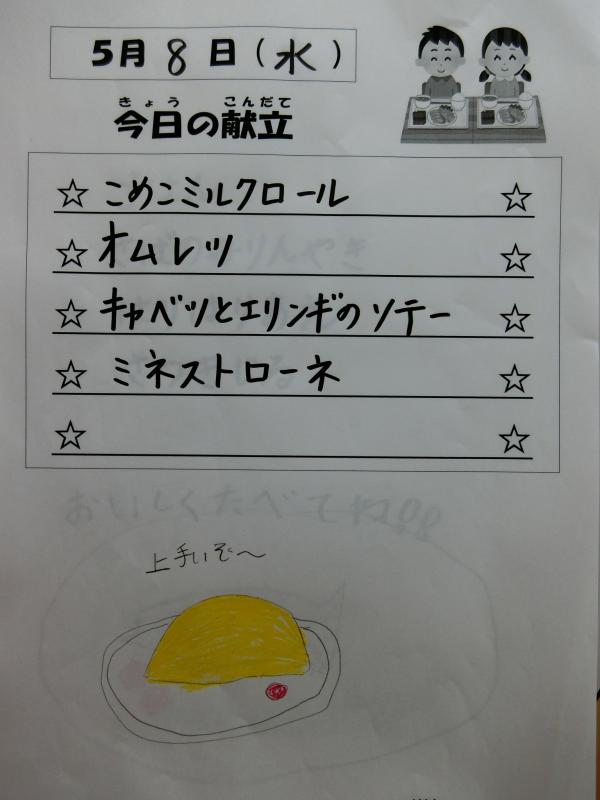 5月8日(水)
きょう こんだて
今日の献立
☆ こめこミルクロール ☆
☆ オムレツ ☆
☆ キャベツとエリンギのソテー ☆
☆ ミネストローネ ☆
☆ ☆
おいしくたべてね!!
上手いぞ～